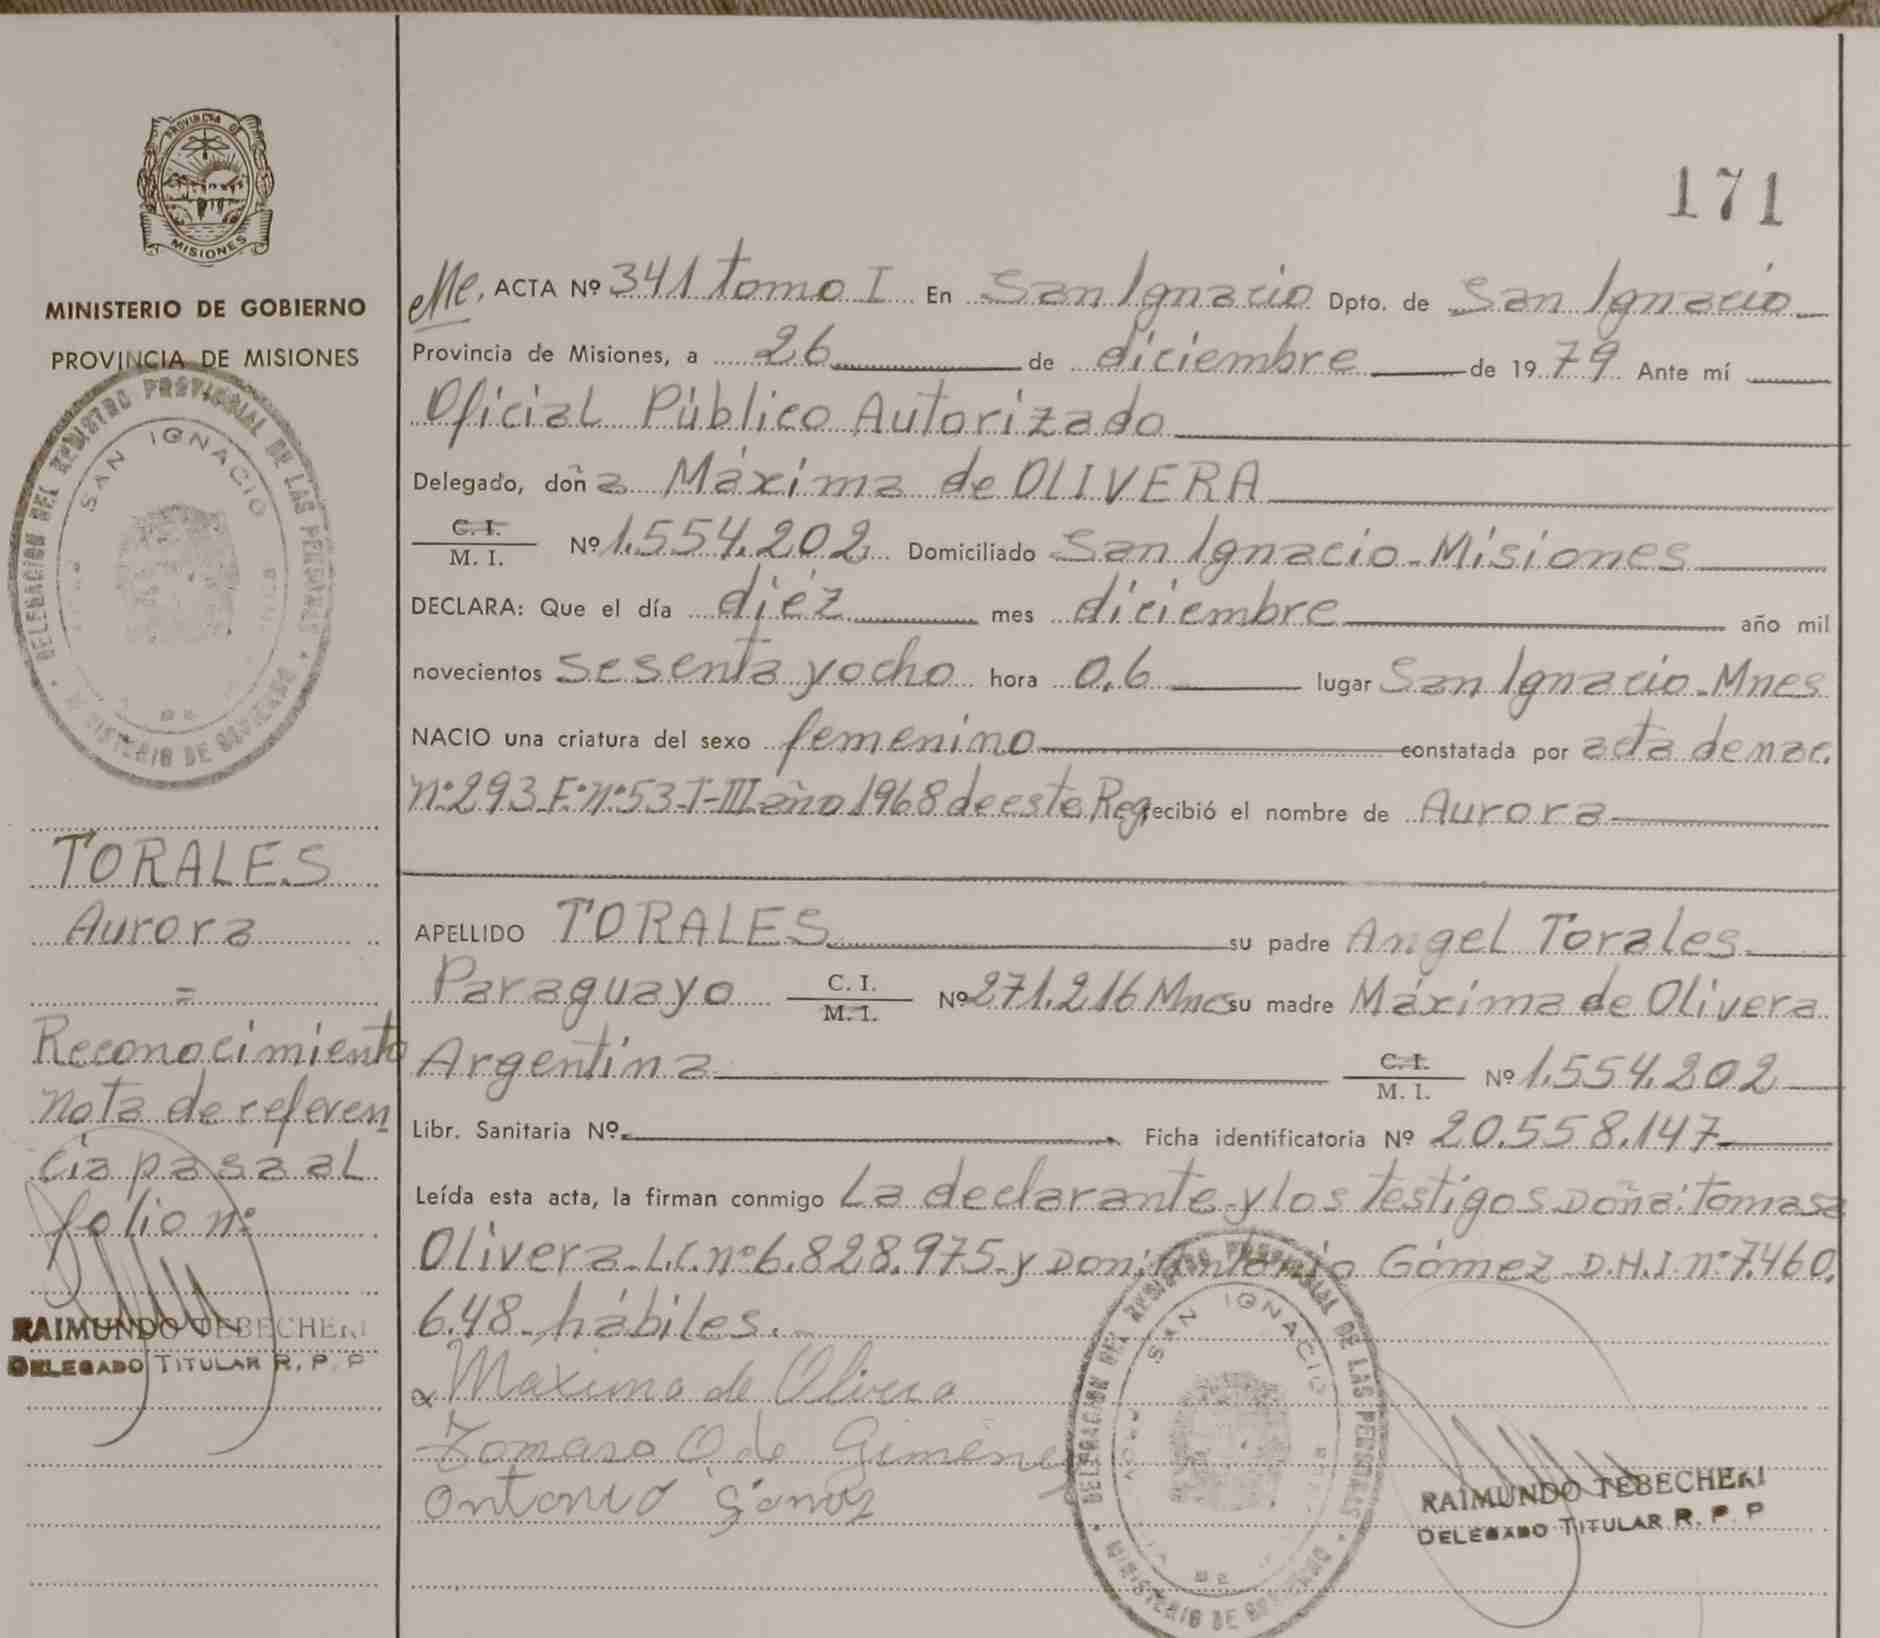 PROVINCIA DE
MISIONES
MINISTERIO DE GOBIERNO
PROVINCIA DE MISIONES
DELEGACION DEL REGISTRO PROVINCIAL DE LAS PERSONAS
SAN IGNACIO
MINISTERIO DE GOBIERNO
TORALES
Aurora
=
Reconocimiento
nota de referen
cia pasa al
folio nº
RAIMUNDO TEBECHERI
DELEGADO TITULAR R. P. P
171
ACTA Nº 341 tomo I En San Ignacio Dpto. de San Ignacio
Provincia de Misiones, a 26 de diciembre de 1979 Ante mí
Oficial Público Autorizado
Delegado, doña Máxima de OLIVERA
C. I. / M. I. Nº 1.554.202 Domiciliado San Ignacio-Misiones
DECLARA: Que el día diéz mes diciembre año mil
novecientos sesenta y ocho hora 0,6 lugar San Ignacio-Mnes
NACIO una criatura del sexo femenino constatada por acta de nac.
nº293 Fº nº53 T-III año 1968 de este Reg recibió el nombre de Aurora
APELLIDO TORALES su padre Angel Torales
Paraguayo C. I. / M. I. Nº 271.216 Mnes su madre Máxima de Olivera
Argentina C. I. / M. I. Nº 1.554.202
Libr. Sanitaria Nº Ficha identificatoria Nº 20.558.147
Leída esta acta, la firman conmigo La declarante y los testigos Doña: Tomasa
Olivera L.C. nº 6.828.975 y Don: Antonio Gómez D.N.I nº 7.460.
648 hábiles.
Maxima de Olivera
Tomasa O de Gimene
Antonio Gomez
DELEGACION DEL REGISTRO PROVINCIAL DE LAS PERSONAS
SAN IGNACIO
MINISTERIO DE GOBIERNO
RAIMUNDO TEBECHERI
DELEGADO TITULAR R. P. P